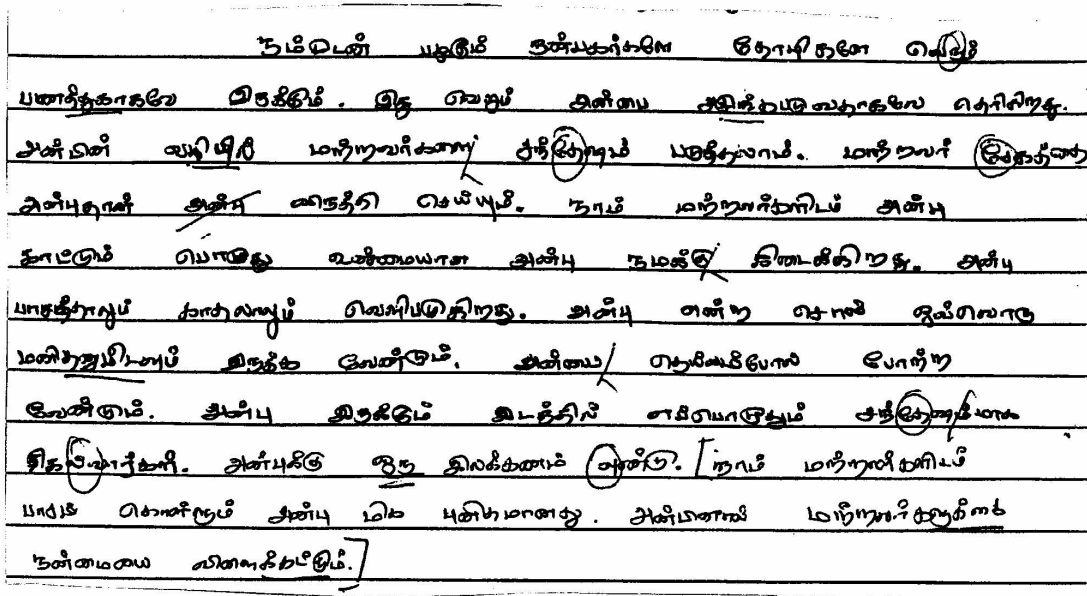 நம்முடன் பழகும் நன்பகர்களே தோழிகளே வெறும்
பணத்துகாகவே இருக்கும். இது வெறும் அன்பை அழிக்கபடுவதாகவே தெரிகிறது.
அன்பின் வழியில் மற்றவர்களை சந்தேஷம் படுத்தலாம். மற்றவர்
அன்புதான் அன்பு விருத்தி செய்யும். நாம் மற்றவர்களிடம் அன்பு
காட்டும் பொழுது உண்மையான அன்பு நமக்கு கிடைக்கிறது. அன்பு
பாசத்தாலும் காதலாலும் வெளிபடுகிறது. அன்பு என்ற சொல் ஒவ்வொரு
மனிதனுமிடமும் இருக்க வேண்டும். அன்பை தெய்வம்போல் போற்ற
வேண்டும். அன்பு இருக்கும் இடத்தில் எப்பொழுதும் சந்தேஷம்மாக
திகழ்வார்கள். அன்புக்கு ஒரு இலக்கணம் அண்டு. நாம் மற்றவர்களிடம்
பாசம் கொள்ளும் அன்பு மிக புனிதமானது. அன்பினால் மற்றவர்களுக்கு
நன்மையை விளைக்கட்டும்.